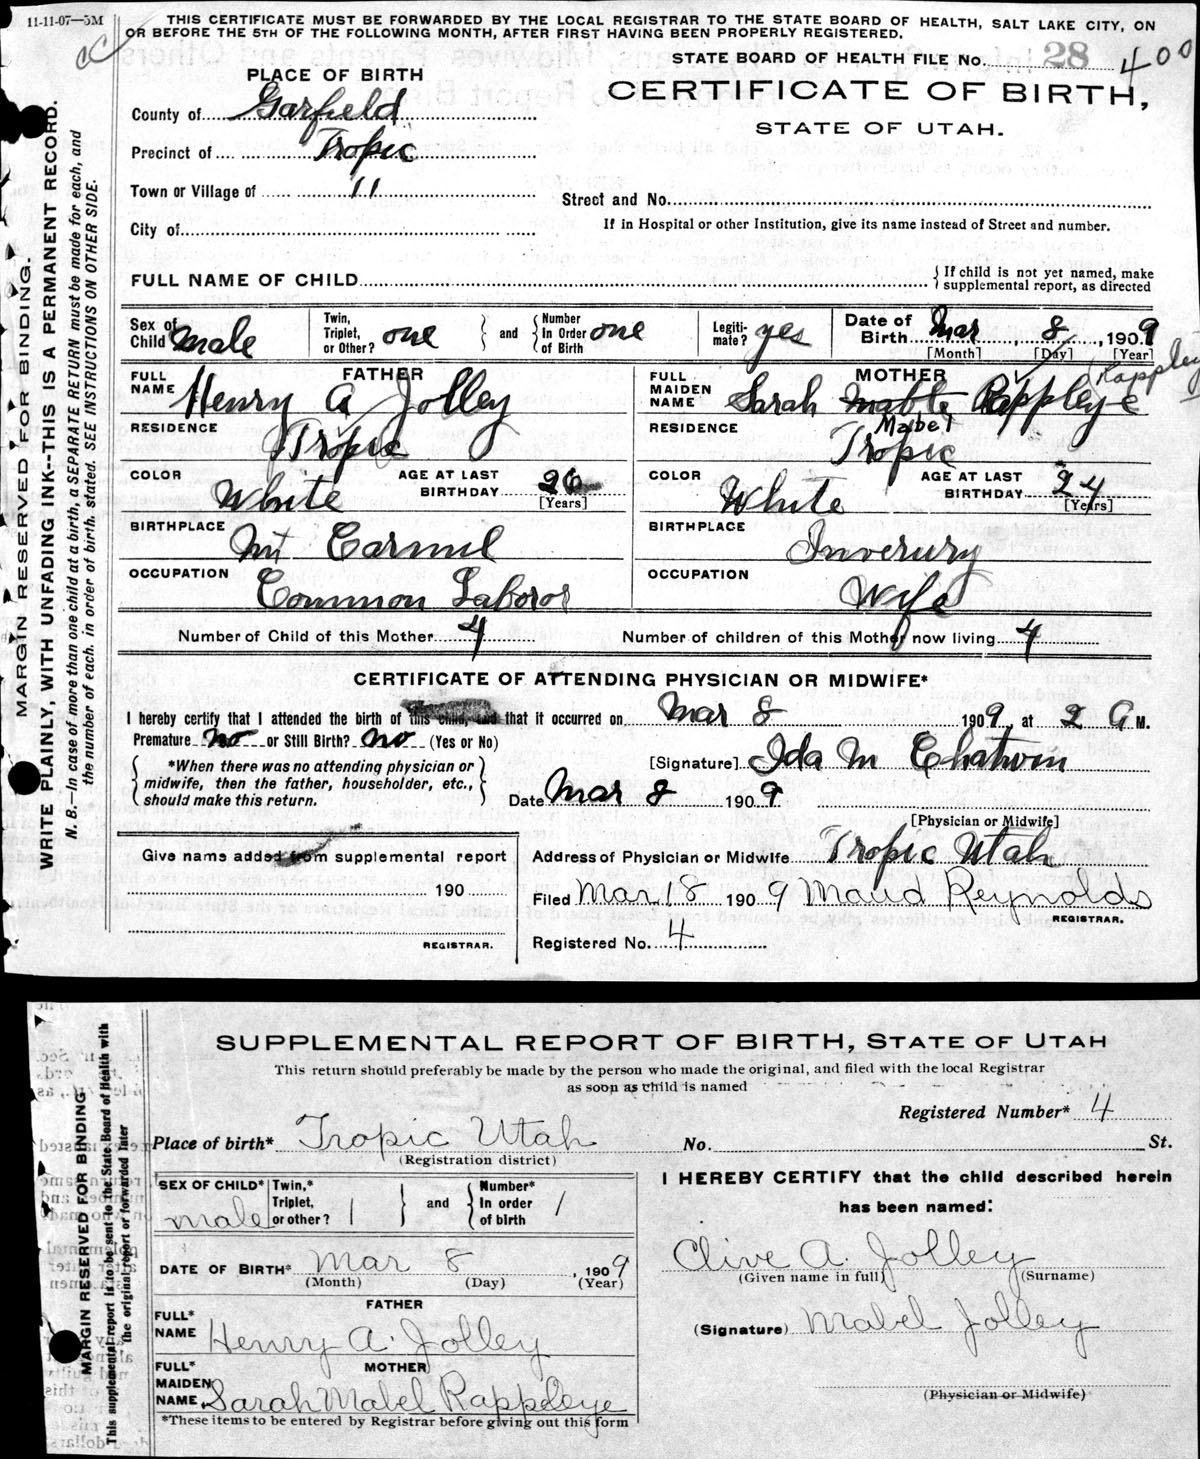 11-11-07—5M
THIS CERTIFICATE MUST BE FORWARDED BY THE LOCAL REGISTRAR TO THE STATE BOARD OF HEALTH, SALT LAKE CITY, ON
OR BEFORE THE 5TH OF THE FOLLOWING MONTH, AFTER FIRST HAVING BEEN PROPERLY REGISTERED.
STATE BOARD OF HEALTH FILE No. 28 400
CERTIFICATE OF BIRTH,
STATE OF UTAH.
PLACE OF BIRTH
County of Garfield
Precinct of Tropic
Town or Village of "
City of
Street and No.
If in Hospital or other Institution, give its name instead of Street and number.
FULL NAME OF CHILD
{ If child is not yet named, make
supplemental report, as directed
Sex of Child male
Twin, Triplet, or Other? one } and { Number In Order of Birth one
Legitimate? yes
Date of Birth Mar 8, 1909
[Month] [Day] [Year]
FATHER
FULL NAME Henry A Jolley
RESIDENCE Tropic
COLOR White
AGE AT LAST BIRTHDAY 26 [Years]
BIRTHPLACE Mt Carmel
OCCUPATION Common Laboror
MOTHER
FULL MAIDEN NAME Sarah Mable Rappleye
Rappley
Mabel
RESIDENCE Tropic
COLOR White
AGE AT LAST BIRTHDAY 24 [Years]
BIRTHPLACE Inverury
OCCUPATION Wife
Number of Child of this Mother 4
Number of children of this Mother now living 4
CERTIFICATE OF ATTENDING PHYSICIAN OR MIDWIFE*
I hereby certify that I attended the birth of this child, and that it occurred on Mar 8 1909, at 2 A M.
Premature no or Still Birth? no (Yes or No)
*When there was no attending physician or
midwife, then the father, householder, etc.,
should make this return.
[Signature] Ida M Chatwin
Date Mar 8 1909
[Physician or Midwife]
Give name added from supplemental report
190
REGISTRAR.
Address of Physician or Midwife Tropic Utah
Filed Mar 18 1909 Maud Reynolds
REGISTRAR.
Registered No. 4
MARGIN RESERVED FOR BINDING.
WRITE PLAINLY, WITH UNFADING INK--THIS IS A PERMANENT RECORD.
N. B.—In case of more than one child at a birth, a SEPARATE RETURN must be made for each, and
the number of each, in order of birth, stated. SEE INSTRUCTIONS ON OTHER SIDE.
SUPPLEMENTAL REPORT OF BIRTH, STATE OF UTAH
This return should preferably be made by the person who made the original, and filed with the local Registrar
as soon as child is named
Registered Number* 4
Place of birth* Tropic Utah No. St.
(Registration district)
SEX OF CHILD* male
Twin,* Triplet, or other? 1 } and { Number* In order of birth 1
DATE OF BIRTH* Mar 8, 1909
(Month) (Day) (Year)
FATHER
FULL* NAME Henry A. Jolley
MOTHER
FULL* MAIDEN NAME Sarah Mabel Rappleye
*These items to be entered by Registrar before giving out this form
I HEREBY CERTIFY that the child described herein
has been named:
Clive A. Jolley
(Given name in full) (Surname)
(Signature) Mabel Jolley
(Physician or Midwife)
MARGIN RESERVED FOR BINDING
This supplemental report is to be sent to the State Board of Health with
the original report or forwarded later